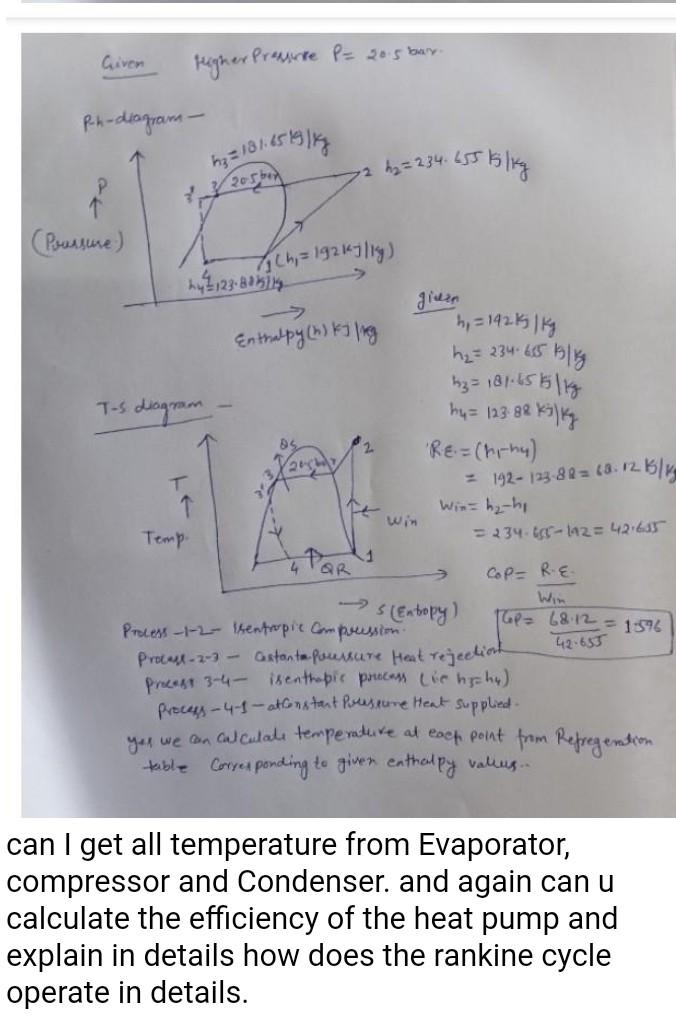 Given Higher Pressure P= 20.5 bar.
P-h-diagram —
h3=181.65 kJ/kg
2 h2=234.655 kJ/kg
3' 3 20.5 bar
P
(Pressure)
1 (h1=192 kJ/kg)
4
h4=123.88 kJ/kg
Enthalpy (h) kJ/kg
given
h1=192 kJ/kg
h2= 234.655 kJ/kg
h3= 181.65 kJ/kg
h4= 123.88 kJ/kg
T-S diagram —
QS
2
3 20.5 bar
3'
T
Temp.
Win
4 QR 1
→ S (Entropy)
R.E.=(h1-h4)
= 192-123.88= 68.12 kJ/kg
Win= h2-h1
= 234.655-192= 42.655
COP= R.E.
Win
COP= 68.12 = 1.596
42.655
Process -1-2- Isentropic Compression.
Process-2-3 - Constant Pressure Heat rejection
Process 3-4- isenthapic process (ie h3=h4)
Process-4-1-at Constant Pressure Heat Supplied.
yes we can Calculate temperature at each point from Refregeration
table Corresponding to given enthalpy values..
can I get all temperature from Evaporator,
compressor and Condenser. and again can u
calculate the efficiency of the heat pump and
explain in details how does the rankine cycle
operate in details.